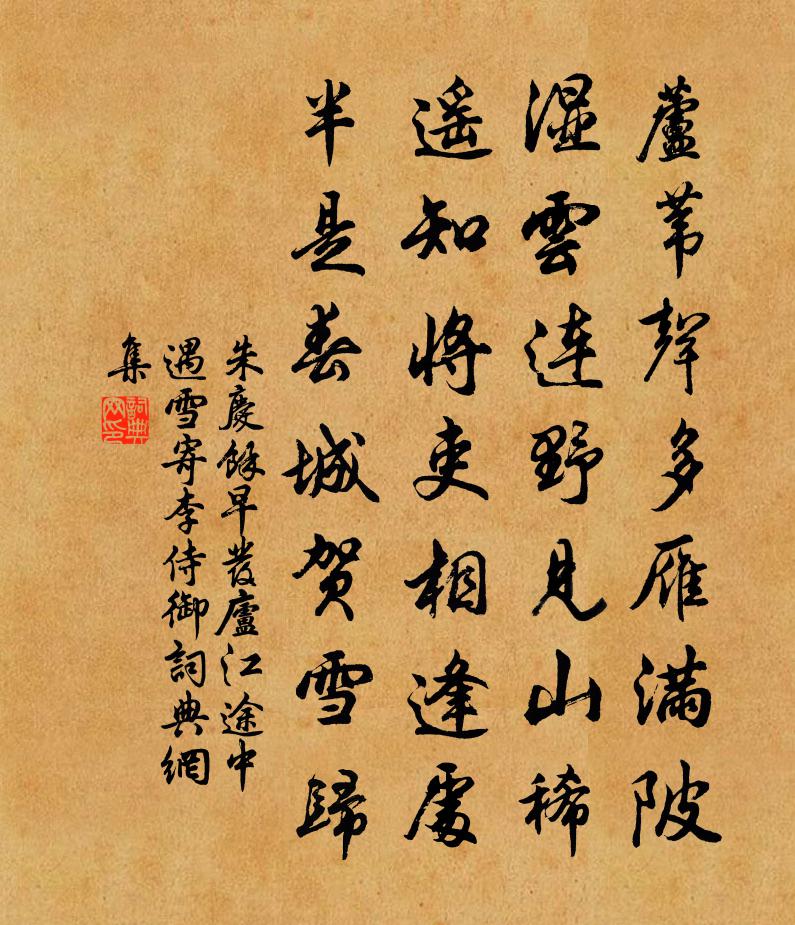 蘆葦聲多雁满陂
湿雲連野見山稀
遥知將吏相逢處
半是春城賀雪歸
朱慶餘早發廬江途中
遇雪寄李侍御詞典網
集
詞典网印